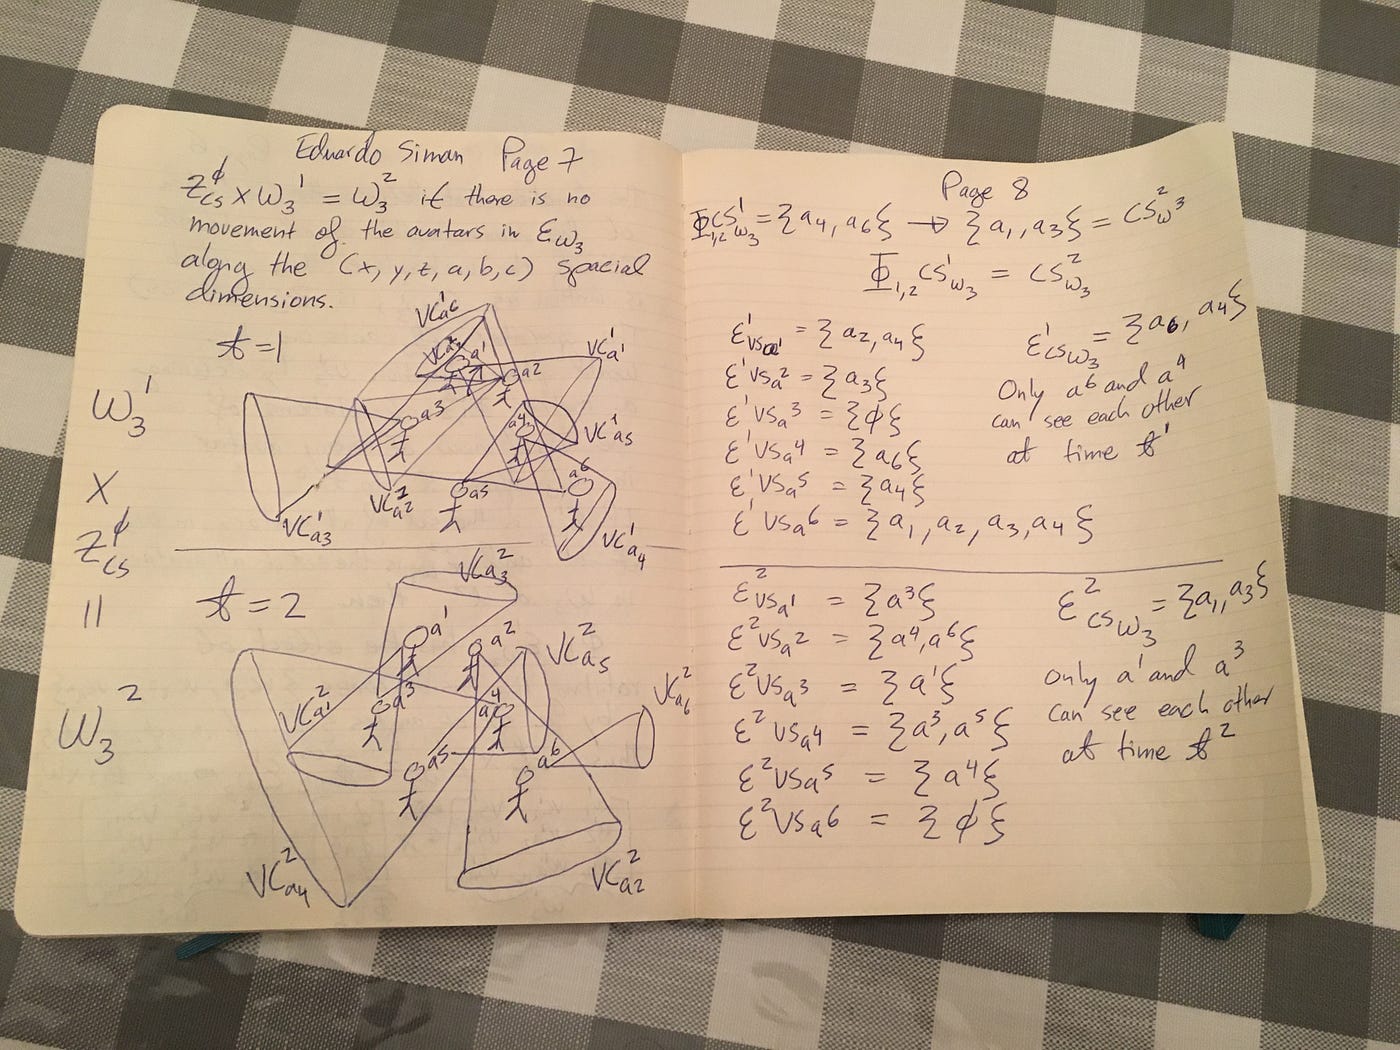 Eduardo Siman Page 7
Z^ϕ_CS X W_3^1 = W_3^2 if there is no
movement of the avatars in Ɛ_W3
along the (x, y, z, a, b, c) spacial
dimensions.
t=1
W_3^1
X
Z^ϕ_CS
=
W_3^2
VC^1_a6
a^1
a^2
VC^1_a1
a^3
a^4
VC^1_a5
a^6
VC^1_a2
a5
VC^1_a3
VC^1_a4
t=2
VC^2_a3
a^1
a^2
VC^2_a5
VC^2_a1
a^3
a^4
VC^2_a6
a^5
a^6
VC^2_a4
VC^2_a2
Page 8
Φ_1,2 CS^1_W3 = {a4, a6} → {a1, a3} = CS^2_W3
Φ_1,2 CS^1_W3 = CS^2_W3
Ɛ^1_VSa1 = {a2, a4}
Ɛ^1 VSa^2 = {a3}
Ɛ^1 VSa^3 = {ϕ}
Ɛ^1 VSa^4 = {a6}
Ɛ^1 VSa^5 = {a4}
Ɛ^1 VSa^6 = {a1, a2, a3, a4}
Ɛ^1_CSW3 = {a6, a4}
Only a^6 and a^4
can see each other
at time t^1
Ɛ^2_VSa1 = {a^3}
Ɛ^2 VSa^2 = {a^4, a^6}
Ɛ^2 VSa^3 = {a^1}
Ɛ^2 VSa4 = {a^3, a^5}
Ɛ^2 VSa^5 = {a^4}
Ɛ^2 VSa6 = {ϕ}
Ɛ^2_CSW3 = {a1, a3}
only a^1 and a^3
can see each other
at time t^2